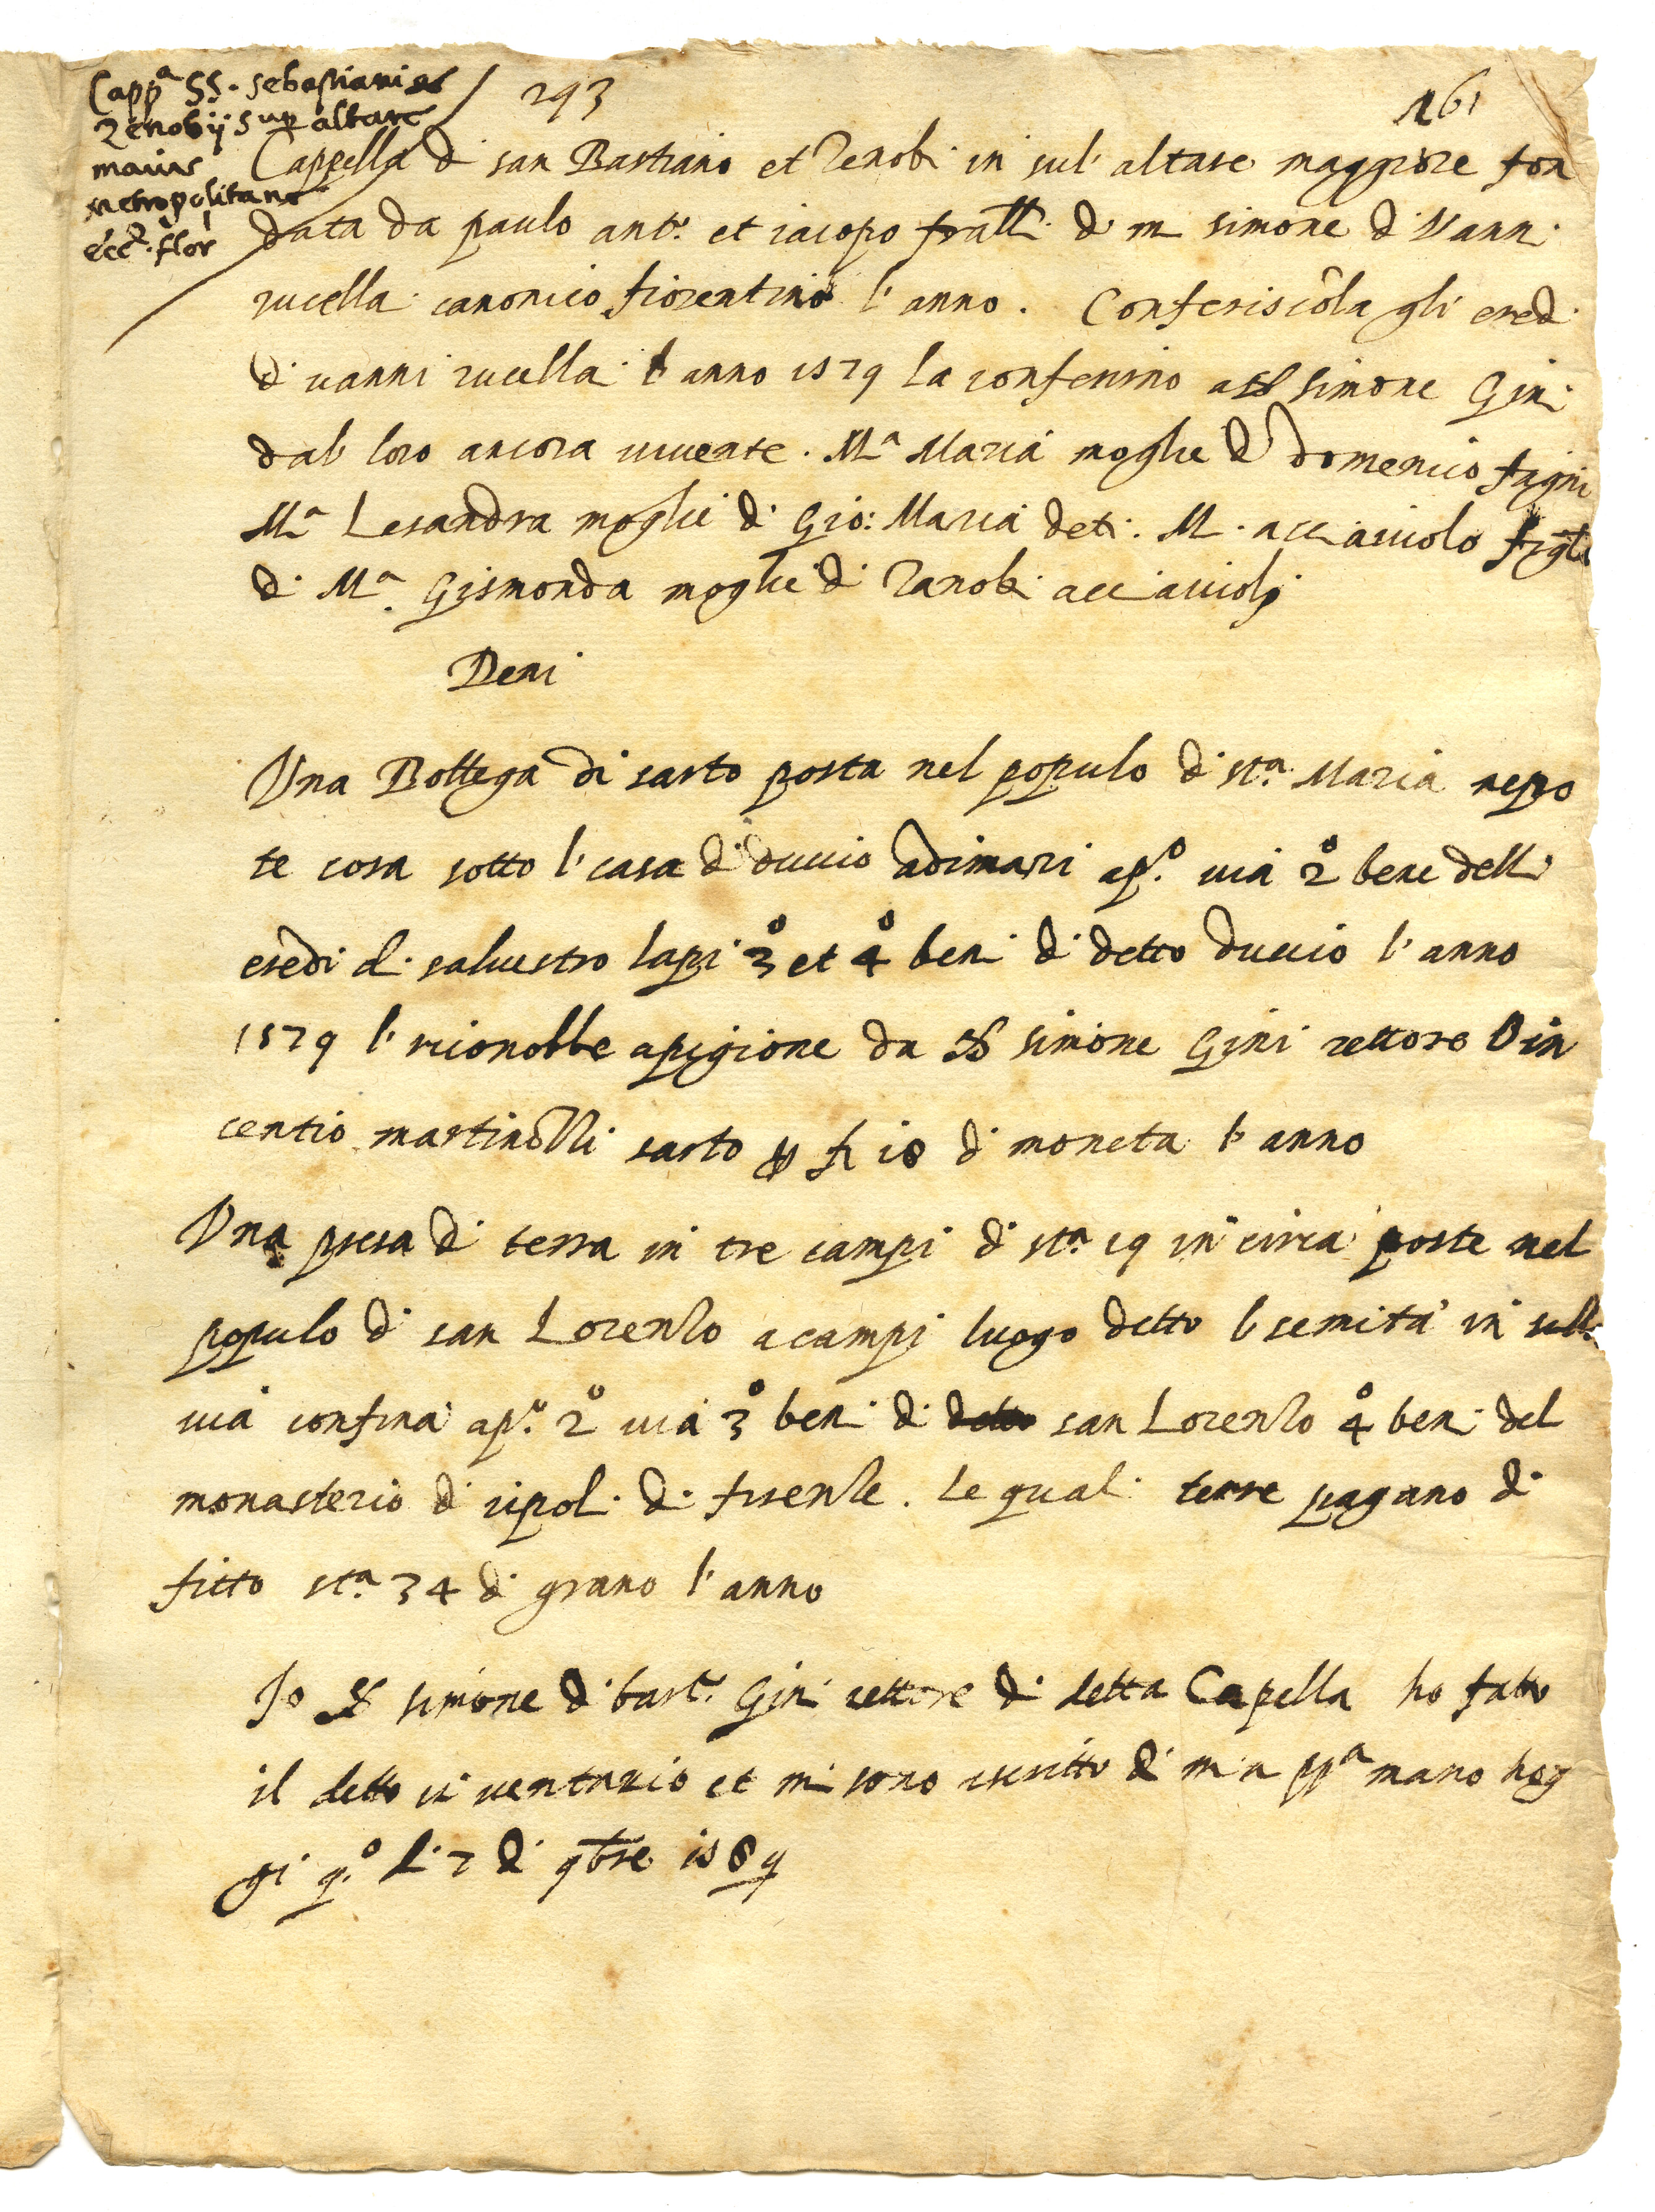 Capp.ª SS. Sebastiani et
Zenobij Sup altare
maius
metropolitane
eccl. flor
293
161
Cappella di san Bastiano et Zenobi in sul' altare maggiore fon
data da paulo ant.º et iacopo fratll. di m simone di Vanni
rucella canonico fiorentino l'anno. Conferiscola gli eredi
di uanni rucella l'anno 1579 la conferirno a simone Gini
dal loro ancora viuente. M.ª Maria moglie di domenico fagni
M.ª Lesandra moglie di Gio: Maria deti. M. acciaiuolo figlio
di M.ª Gismonda moglie di Zanobi acciaiuoli
Beni
Vna Bottega di sarto posta nel populo di st.ª Maria nepo
te cosa sotto l' casa di duccio adimari a p.º via 2º bene delli
eredi di saluestro lapi 3º et 4º beni di detto duccio l'anno
1579 l' riconobbe a pigione da simone Gini rettore Vin
centio martinelli sarto 18 di moneta l'anno
Vna presa di terra in tre campi di st.ª 19 in circa poste nel
populo di san Lorenzo a campi luogo detto l semita in sulla
via confina a p.º 2º via 3º beni di detto san Lorenzo 4º beni del
monasterio di ripoli di firenze. Le quali terre pagano di
fitto st.ª 34 di grano l'anno
Io simone di bart.º Gini rettore di detta Capella ho fatto
il detto inventario et mi sono iscritto di mia pp.ª mano hog
gi q.º di 7 di 9bre 1589